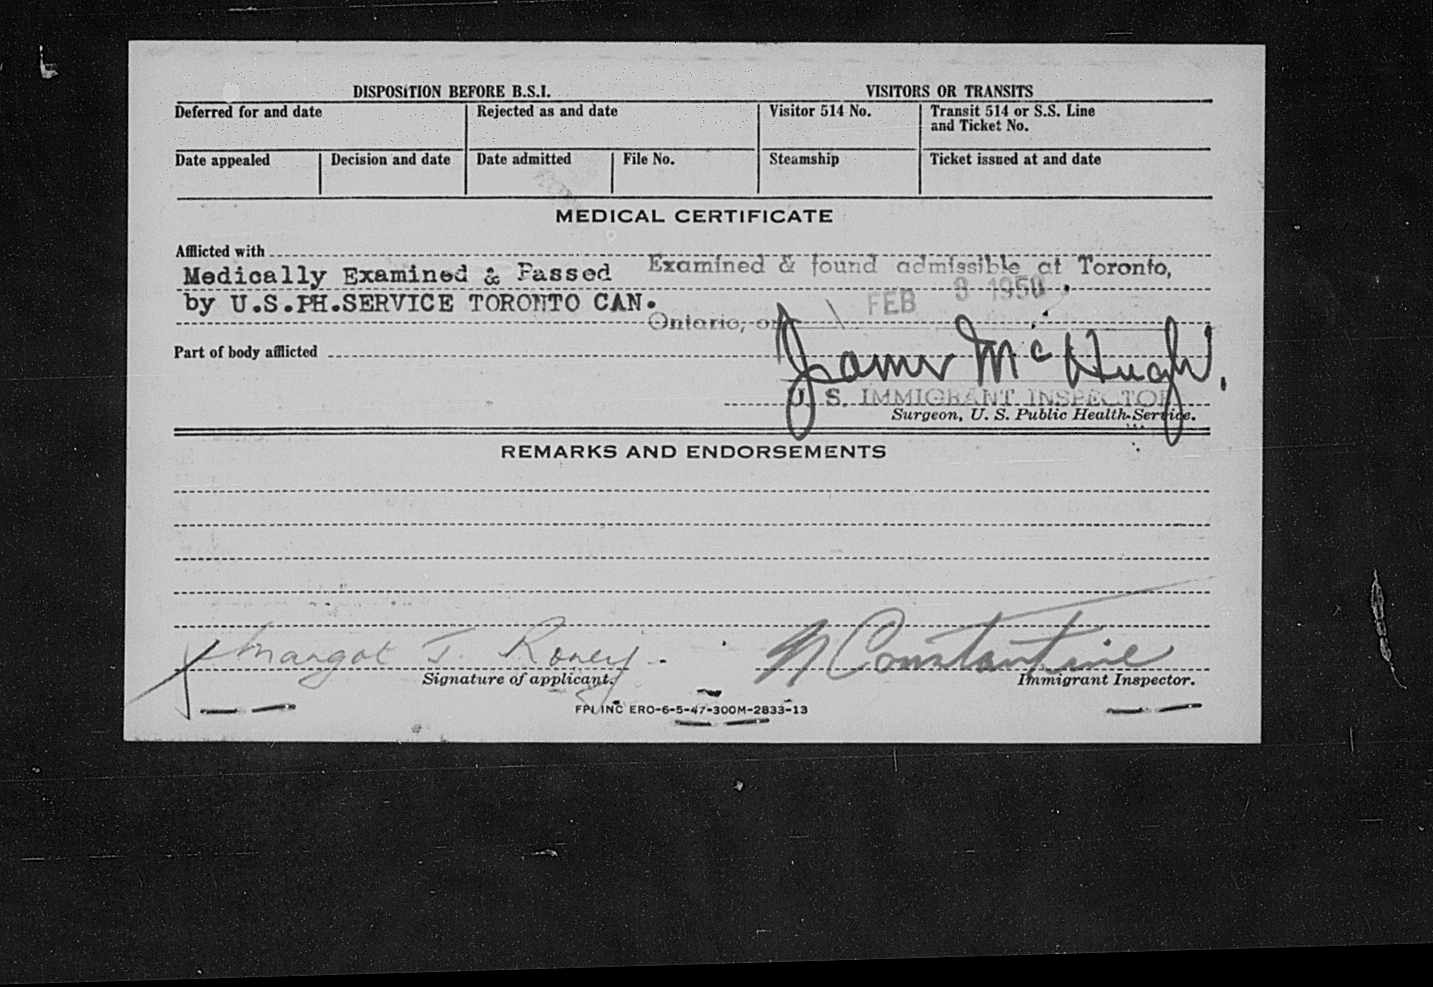 DISPOSITION BEFORE B.S.I. VISITORS OR TRANSITS
Deferred for and date Rejected as and date Visitor 514 No. Transit 514 or S.S. Line
and Ticket No.
Date appealed Decision and date Date admitted File No. Steamship Ticket issued at and date
MEDICAL CERTIFICATE
Afflicted with
Medically Examined & Passed Examined & found admissible at Toronto,
by U.S.PH.SERVICE TORONTO CAN.
Ontario, on FEB 8 1950.
Part of body afflicted
James McHugh
U. S. IMMIGRANT INSPECTOR
Surgeon, U. S. Public Health Service.
REMARKS AND ENDORSEMENTS
X Margot J. Roney N Constantine
Signature of applicant. Immigrant Inspector.
FPI INC ERO-6-5-47-300M-2833-13